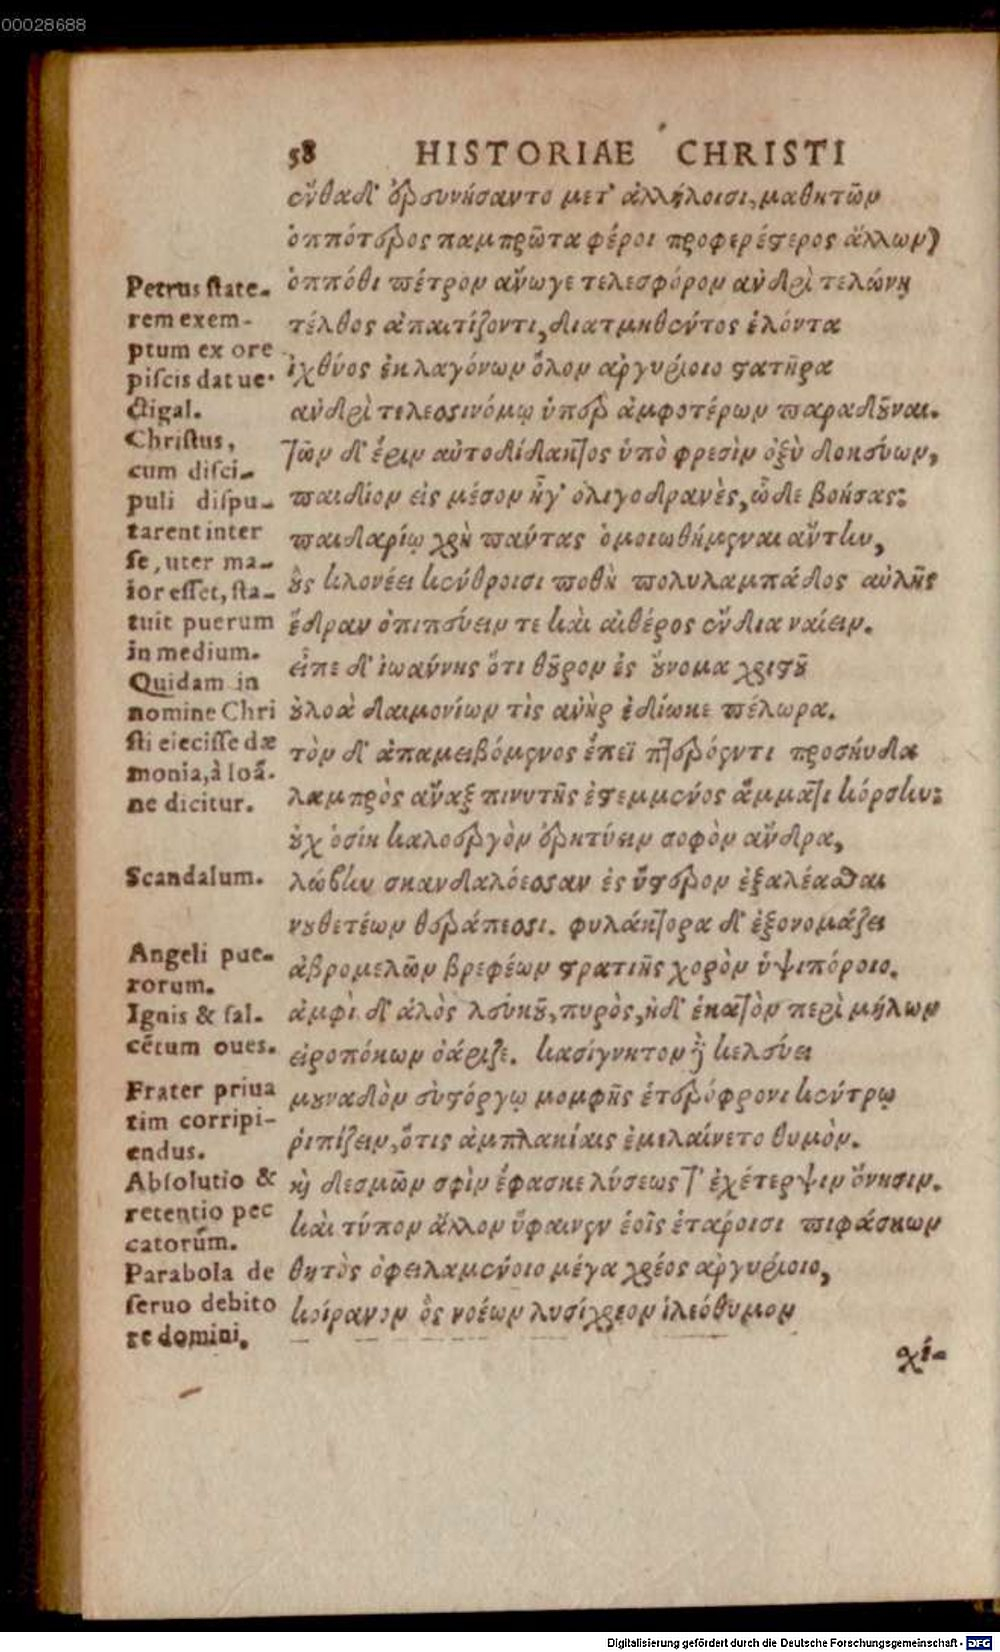 00028688
58 HISTORIAE CHRISTI
ἔνθα δ' ἐρευνήσαντο μετ' ἀλλήλοισι, μαθητῶν
ὁππότερος παμπρῶτα φέροι προφερέστερος ἄλλων)
ὁππόθι πέτρον ἄνωγε τελεσφόρον ἀνδρὶ τελώνῃ
τέλθος ἀπαιτίζοντι, διατμηθέντος ἑλόντα
ἰχθύος ἐκ λαγόνων ὅλον ἀργυρίοιο στατῆρα
ἀνδρὶ τελεσσινόμῳ ὑπὲρ ἀμφοτέρων παραδοῦναι.
τῶν δ' ἔριν αὐτοδίδακτος ὑπὸ φρεσὶν ὀξὺ δοκεύων,
παιδίον εἰς μέσον ἦγ' ὀλιγοδρανὲς, ὧδε βοήσας:
παιδαρίῳ χρὴ πάντας ὁμοιωθήμεναι αὔτην,
οὓς κλονέει κένθροισι ποθὴ πολυλαμπάδος αὐλῆς
ἕδραν ὀπιπεύειν τε καὶ αἰθέρος ἔνδια ναίειν.
εἶπε δ' ἰωάννης ὅτι θοῦρον ἐς οὔνομα χριστοῦ
οὐλοὰ δαιμονίων τὶς ἀνὴρ ἐδίωκε πέλωρα.
τὸν δ' ἀπαμειβόμενος ἔπεϊ πτερόεντι προσηύδα
λαμπρὸς ἄναξ πινυτῆς ἐστεμμένος ἅμματι κόρσην:
οὐχ ὁσίη καλοεργὸν ἐρητύειν σοφὸν ἄνδρα,
λώβην σκανδαλόεσσαν ἐς ὕστερον ἐξαλέασθαι
νουθετέων θεράπεσσι. φυλάκτορα δ' ἐξονομάζει
ἁβρομελῶν βρεφέων στρατιῆς χορὸν ὑψιπόροιο.
ἀμφὶ δ' ἁλὸς λευκοῦ, πυρὸς, ἠδ' ἑκατὸν περὶ μήλων
εἰροπόκων ὀάριζε. κασίγνητον δὲ κελεύει
μουναδὸν εὐστόργῳ μομφῆς ἑτερόφρονι κέντρῳ
ῥιπίζειν, ὅτις ἀμπλακίαις ἐμιλαίνετο θυμὸν.
καὶ δεσμῶν σφὶν ἔφασκε λύσεως τ' ἐχέτερψιν ὄνησιν.
καὶ τύπον ἄλλον ὕφαινεν ἑοῖς ἑτάροισι πιφάσκων
θητὸς ὀφειλαμένοιο μέγα χρέος ἀργυρίοιο,
κοίρανον ὃς νοέων λυσίχρεον ἱλεόθυμον
χί-
Petrus state-
rem exem-
ptum ex ore
piscis dat ue-
ctigal.
Christus,
cum disci-
puli dispu-
tarent inter
se, uter ma-
ior esset, sta-
tuit puerum
in medium.
Quidam in
nomine Chri
sti eiecisse dæ
monia, à Ioã.
ne dicitur.
Scandalum.
Angeli pue-
rorum.
Ignis & sal.
cētum oues.
Frater priua
tim corripi-
endus.
Absolutio &
retentio pec
catorũm.
Parabola de
seruo debito
re domini.
Digitalisierung gefördert durch die Deutsche Forschungsgemeinschaft - DFG